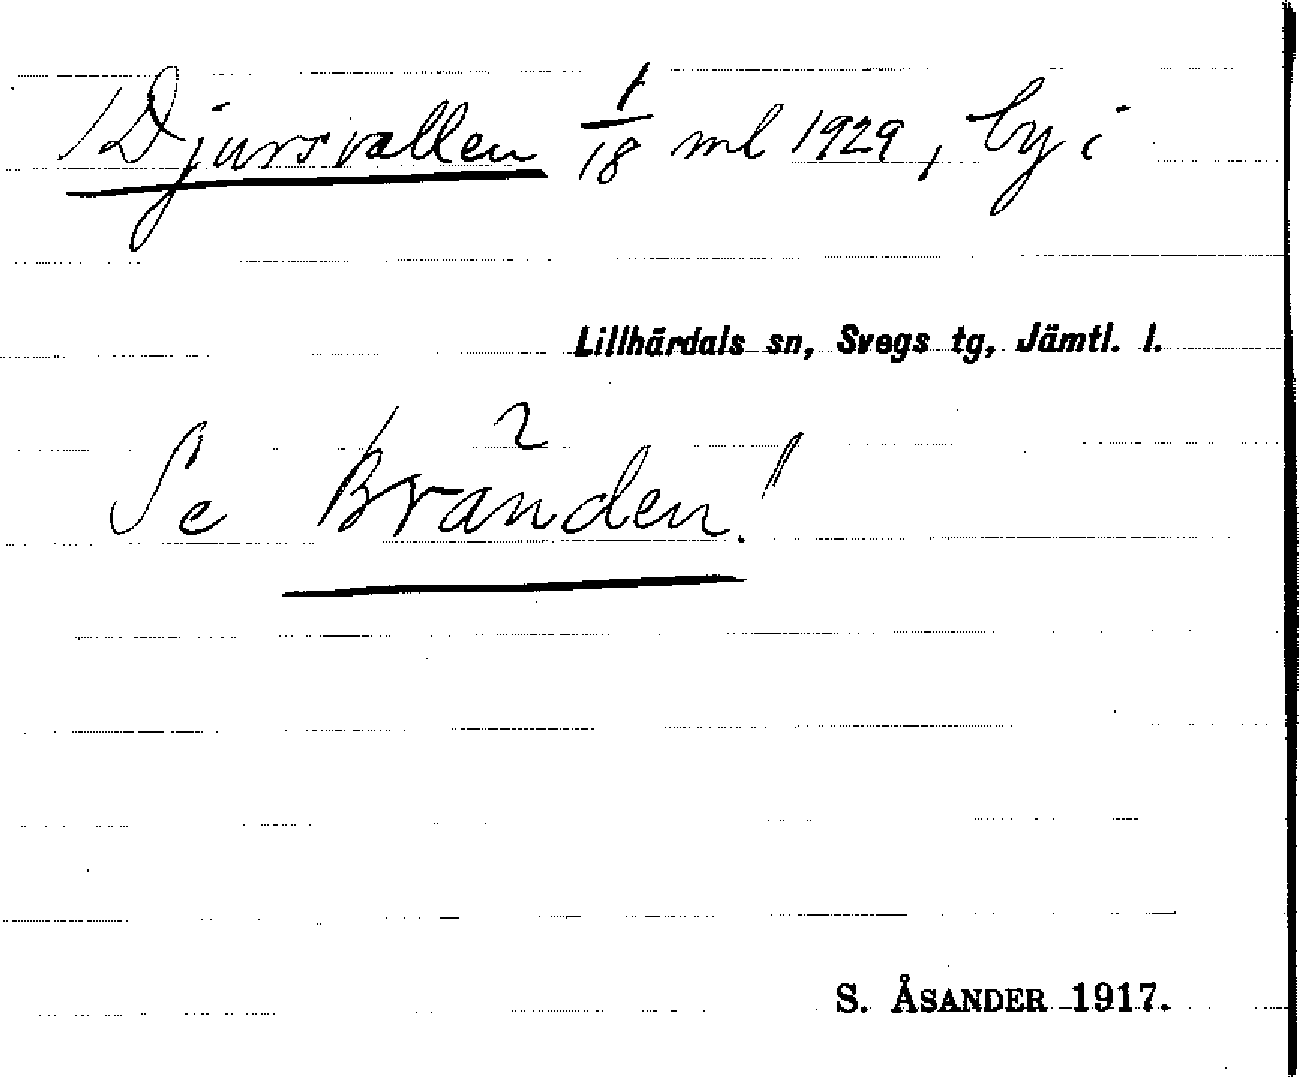 Djursvallen 1/18 ml 1929, by i
Lillhärdals sn, Svegs tg, Jämtl. l.
Se Brånden 2!
S. ÅSANDER 1917.